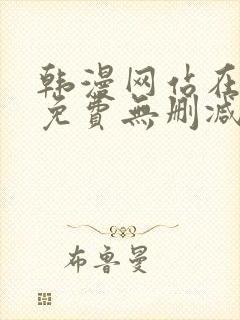 韩漫网站在
免費無删减
布鲁曼